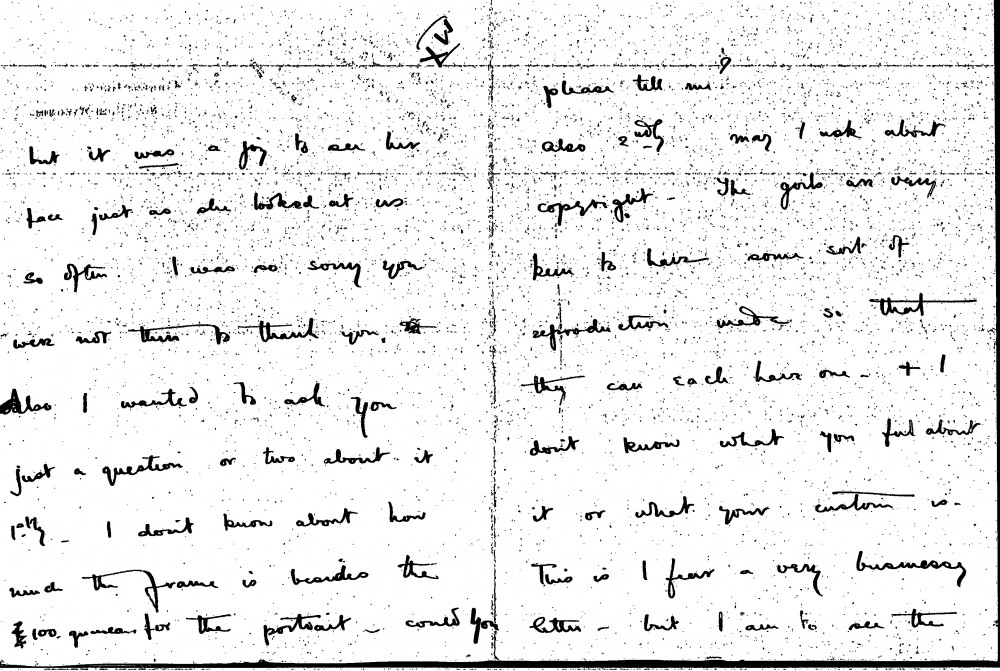 XW
but it was a joy to see her
face just as she looked at us
so often. I was so sorry you
were not there to thank you.
Also I wanted to ask you
just a question or two about it
1stly – I don't know about how
much the frame is besides the
100. guineas for the portrait – could you
please tell me?
also 2ndly may I ask about
copyright – The girls are very
keen to have some sort of
reproduction made so that
they can each have one – + I
don't know what you feel about
it or what your custom is –
This is I fear a very businessy
letter – but I am to see the